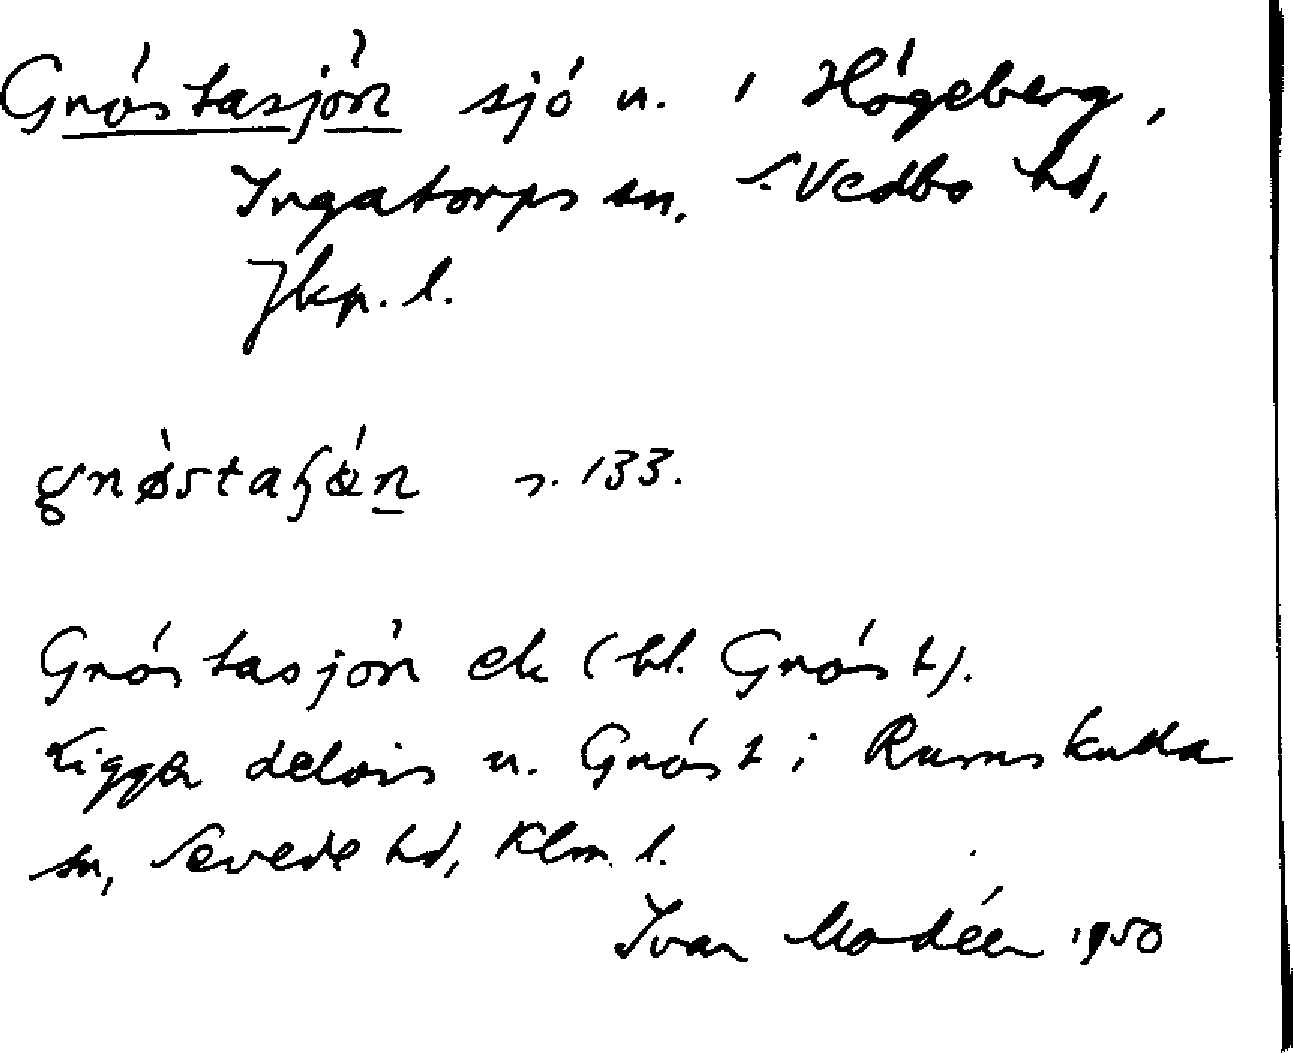 Gnöstasjön sjö u. i Högeberg,
Ingatorps sn, S. Vedbo hd,
Jkp. l.
gnøstaʃɵn s. 133.
Gnöstasjön ek (bl. Gnöst).
Ligger delvis u. Gnöst i Rumskulla
sn, Sevede hd, Klm. l.
Ivar Modéer 1950